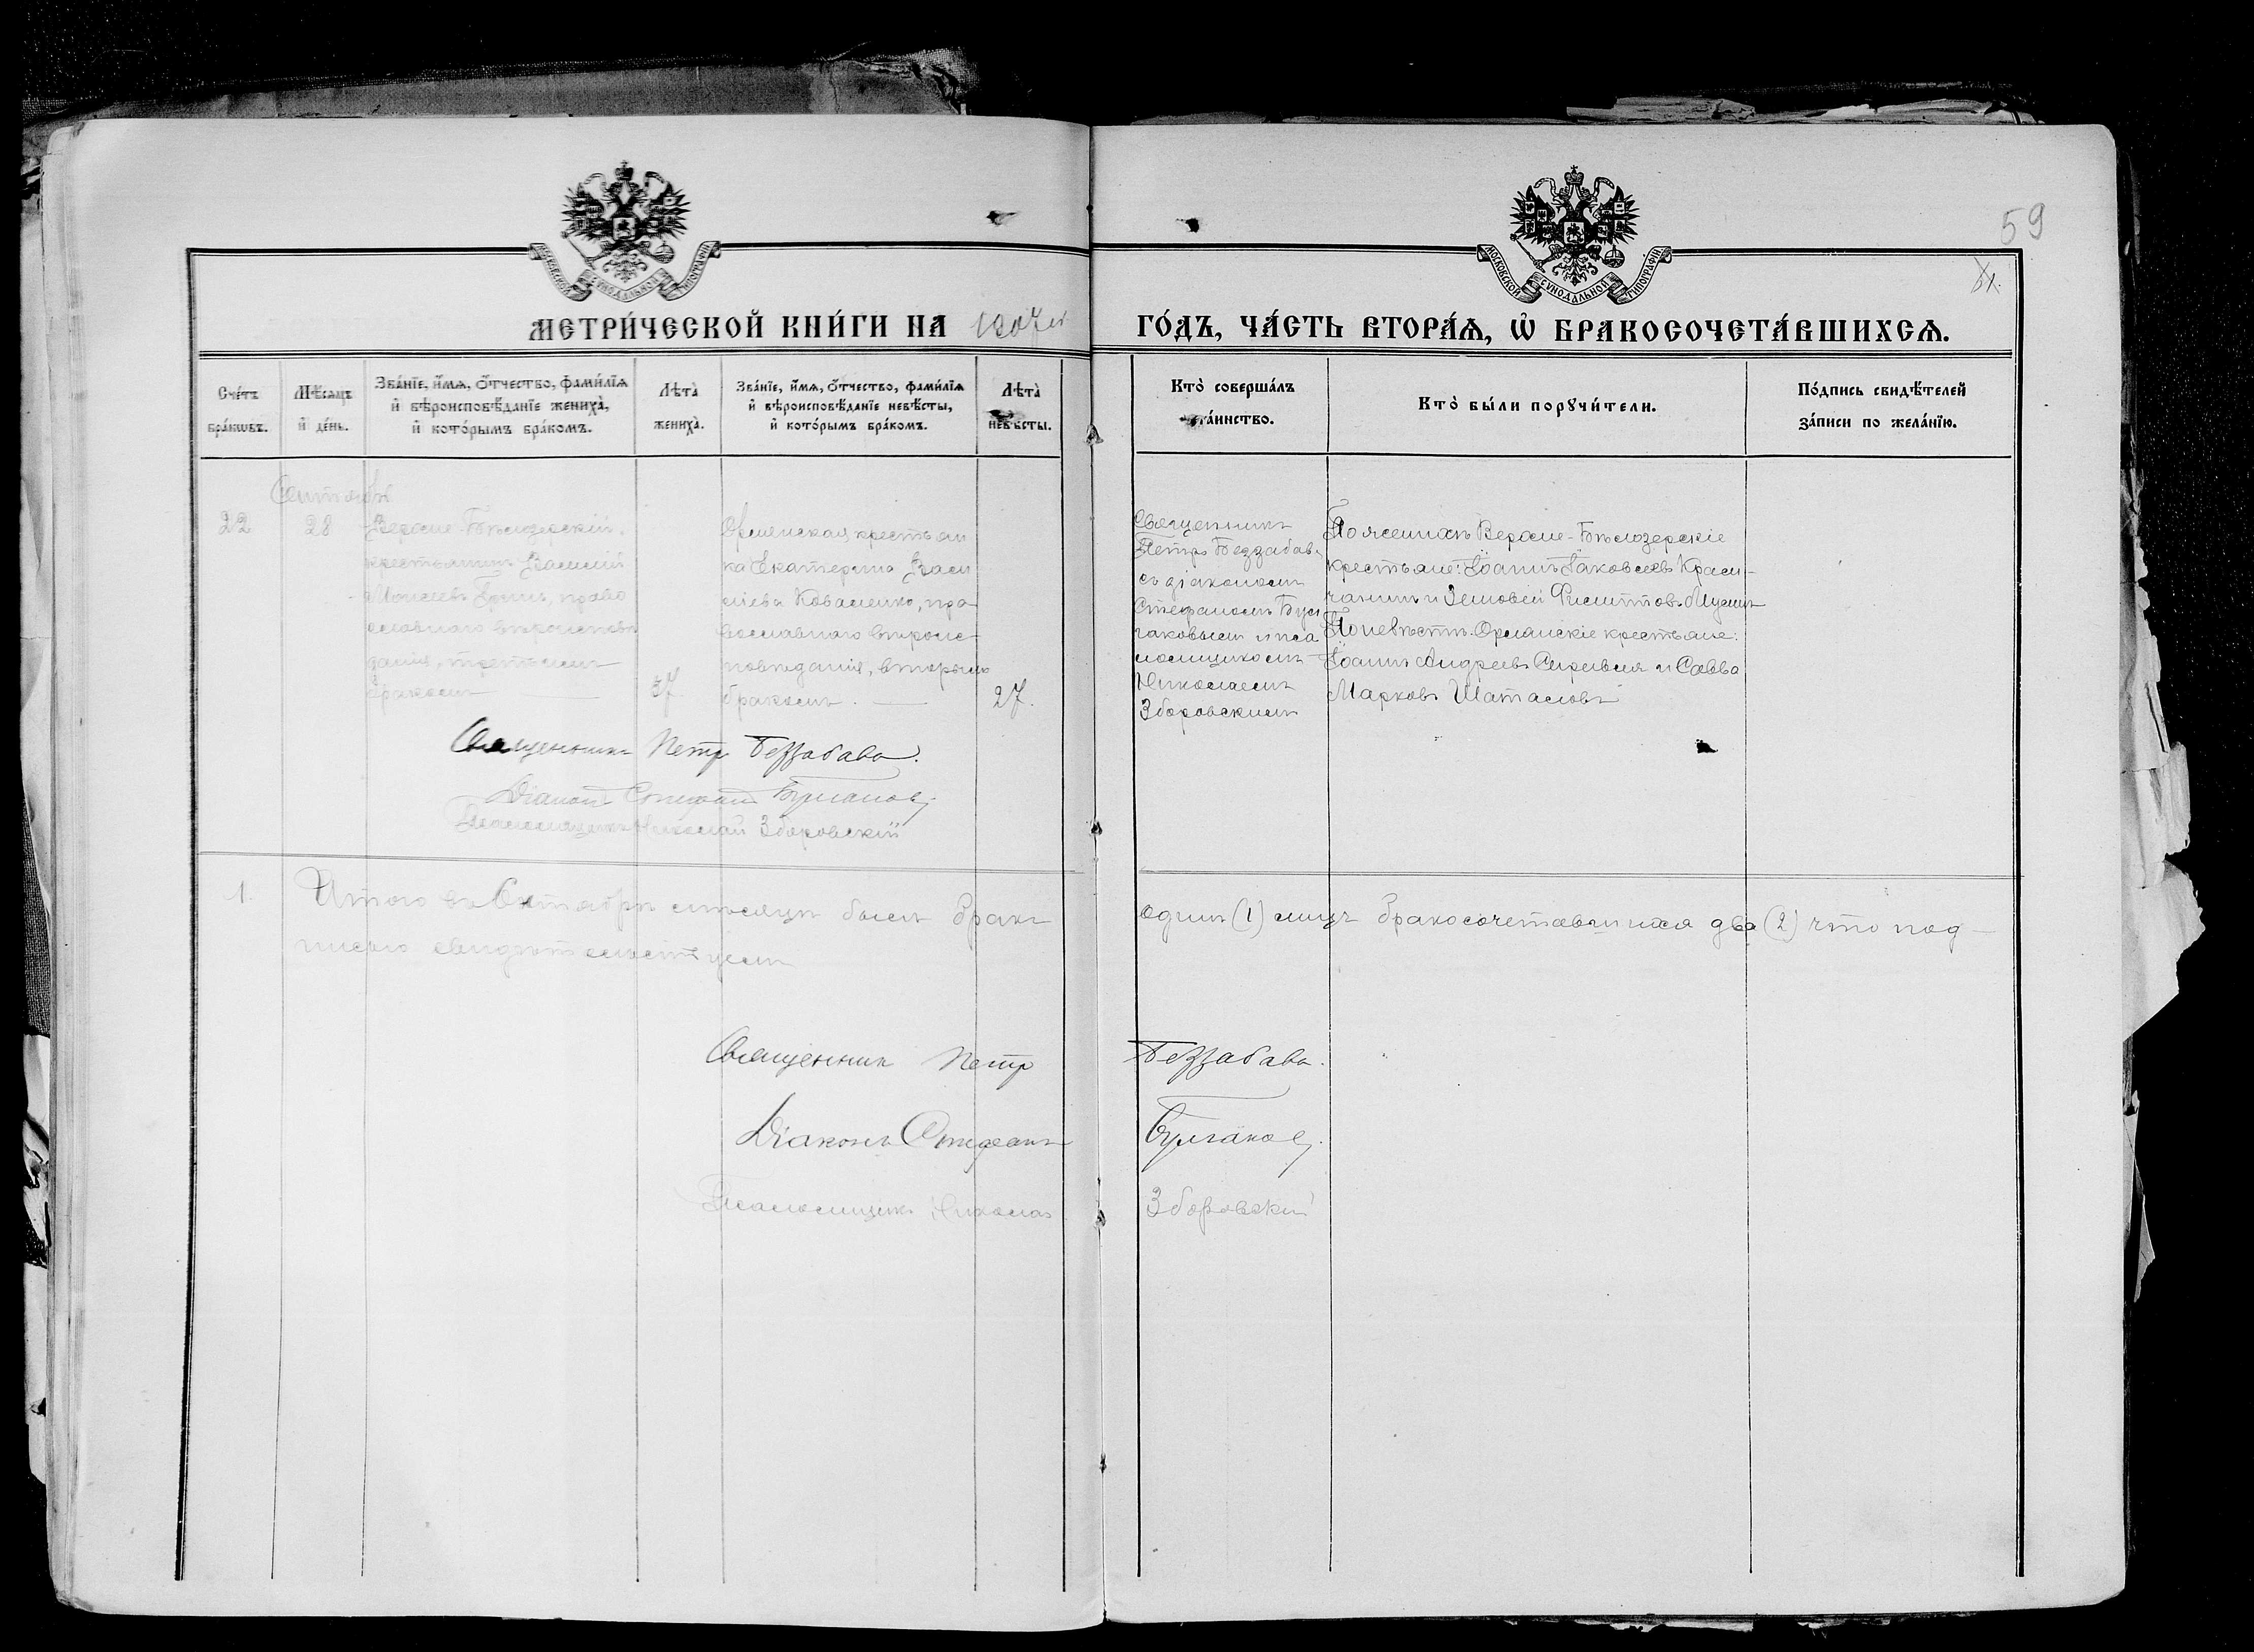 59
МОСКОВСКОЙ СУНОДАЛЬНОЙ ТИПОГРАФІИ.
МОСКОВСКОЙ СУНОДАЛЬНОЙ ТИПОГРАФІИ.
МЕТРИ́ЧЕСКОЙ КНИ́ГИ НА 1907й
ГО́ДЪ, ЧА́СТЬ ВТОРА́Ѧ, Ѽ БРАКОСОЧЕТА́ВШИХСѦ.
Сче́тъ бра́кѡвъ.
Мѣ́сѧцъ и҆ де́нь.
Зва́нїе, и҆́мѧ, ѻ҆́тчество, фами́лїѧ и҆ вѣроисповѣ́данїе жениха̀, и҆ кото́рымъ бра́комъ.
Лѣта̀ жениха̀.
Зва́нїе, и҆́мѧ, ѻ҆́тчество, фами́лїѧ и҆ вѣроисповѣ́данїе невѣ́сты, и҆ кото́рымъ бра́комъ.
Лѣта̀ невѣ́сты.
Кто̀ соверша́лъ та́инство.
Кто̀ бы́ли порꙋчи́тели.
По́дпись свидѣ́телей за́писи по жела́нїю.
22
28
Верхне-Бѣлозерскій
крестьянинъ Василій
Моисеевъ православнаго вѣроисповѣ
данія, третьимъ
бракомъ
37.
крестьян
ка Екатерина Васи
ліева Коваленко, пра
вославнаго вѣроис-
повѣданія, вторымъ
бракомъ.
27.
Священникъ
Петръ Беззабава
съ діакономъ
Стефаномъ Бул
гаковымъ и пса
ломщикомъ
Николаемъ
Зборовскимъ
По женихѣ Верхне-Бѣлозерскіе
крестьяне: Іоаннъ Іаковлевъ
и
По невѣстѣ крестьяне:
Іоаннъ Андреевъ и Савва
Марковъ Шаталовъ
Священникъ Петр Беззабава.
Діаконъ Стефанъ Булгаковъ
Псаломщикъ Николай Зборовскій
1.
Итого въ мѣсяцѣ былъ бракъ
одинъ (1) лицъ бракосочетавшихся два (2) что под-
писью свидѣтельствуемъ
Священник Петр
Беззабава.
Діаконъ Стефанъ
Булгаковъ
Псаломщикъ Николай
Зборовскій